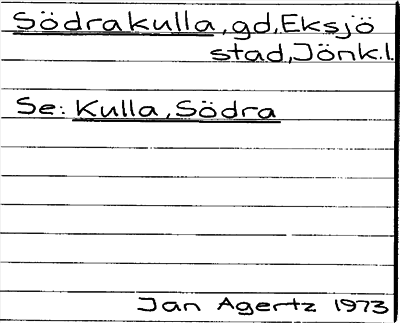 Södrakulla, gd, Eksjö
stad, Jönk.l.
Se: Kulla, Södra
Jan Agertz 1973